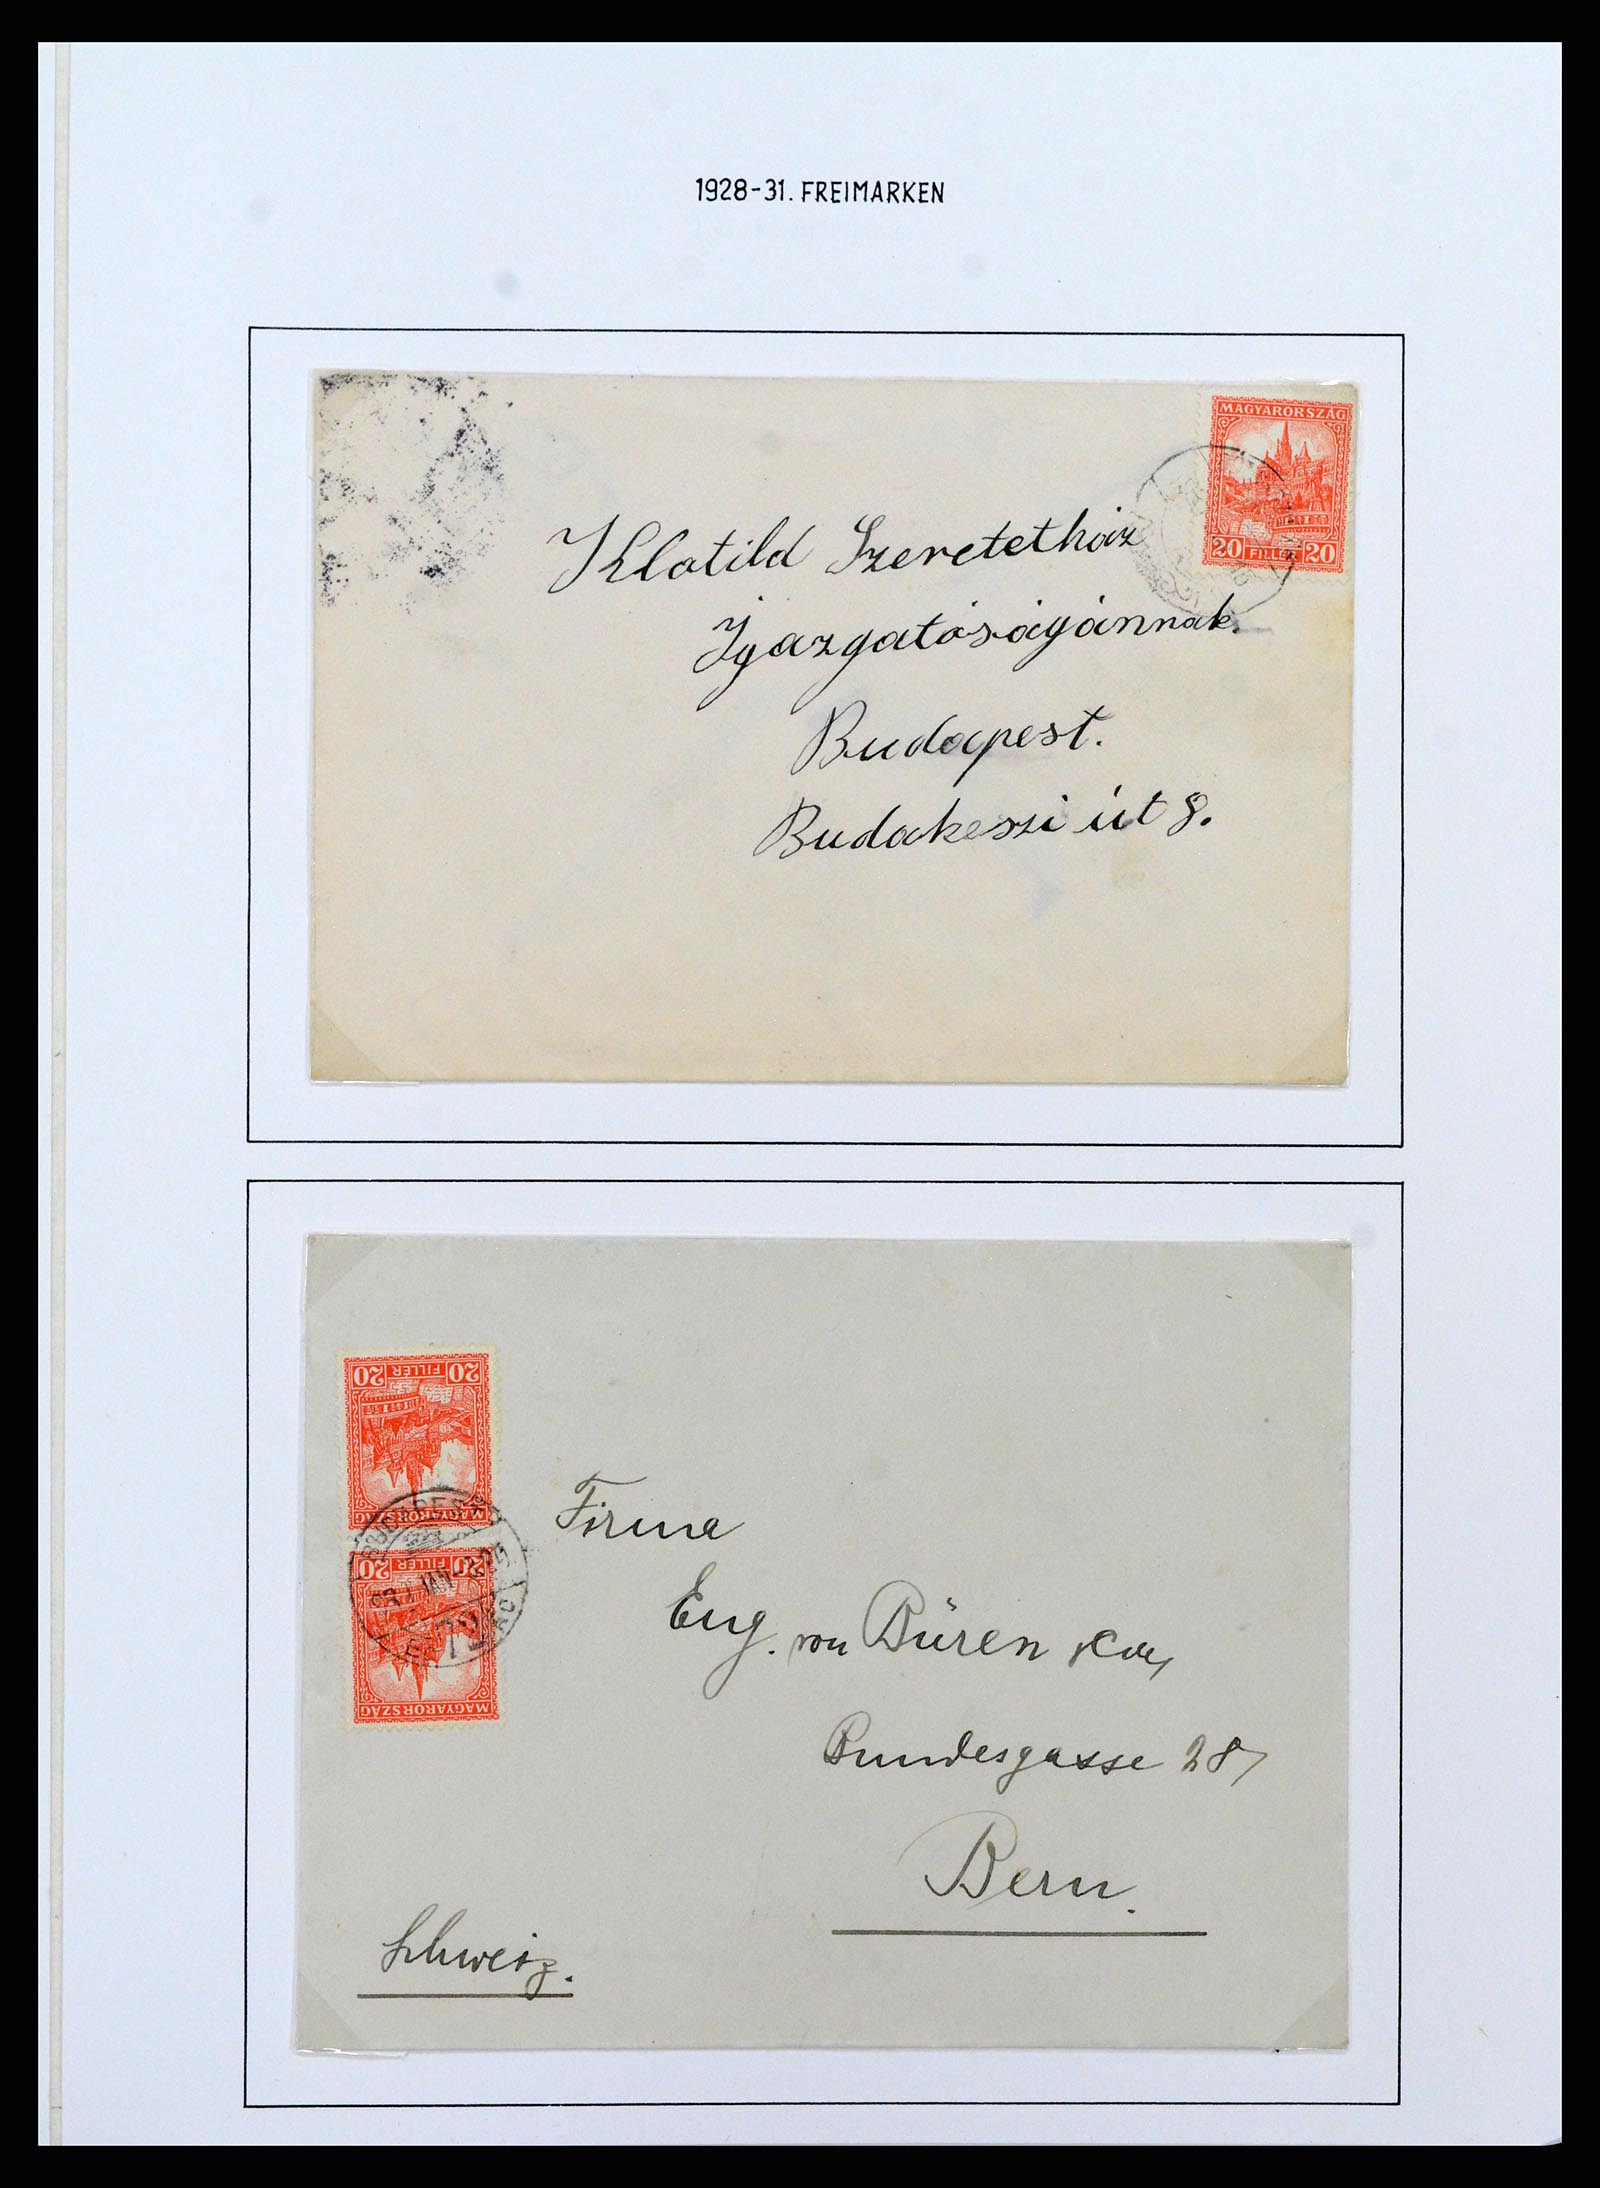 1928-31. FREIMARKEN
MAGYARORSZÁG
20 FILLÉR 20
Klotild Szeretetház
Igazgatóságánnak.
Budapest.
Budakeszi út 8.
20 FILLÉR 20
MAGYARORSZÁG
20 FILLÉR 20
MAGYARORSZÁG
BUDAPEST
72
Firma
Eug. von Büren &
Bundesgasse 28
Bern.
Schweiz.